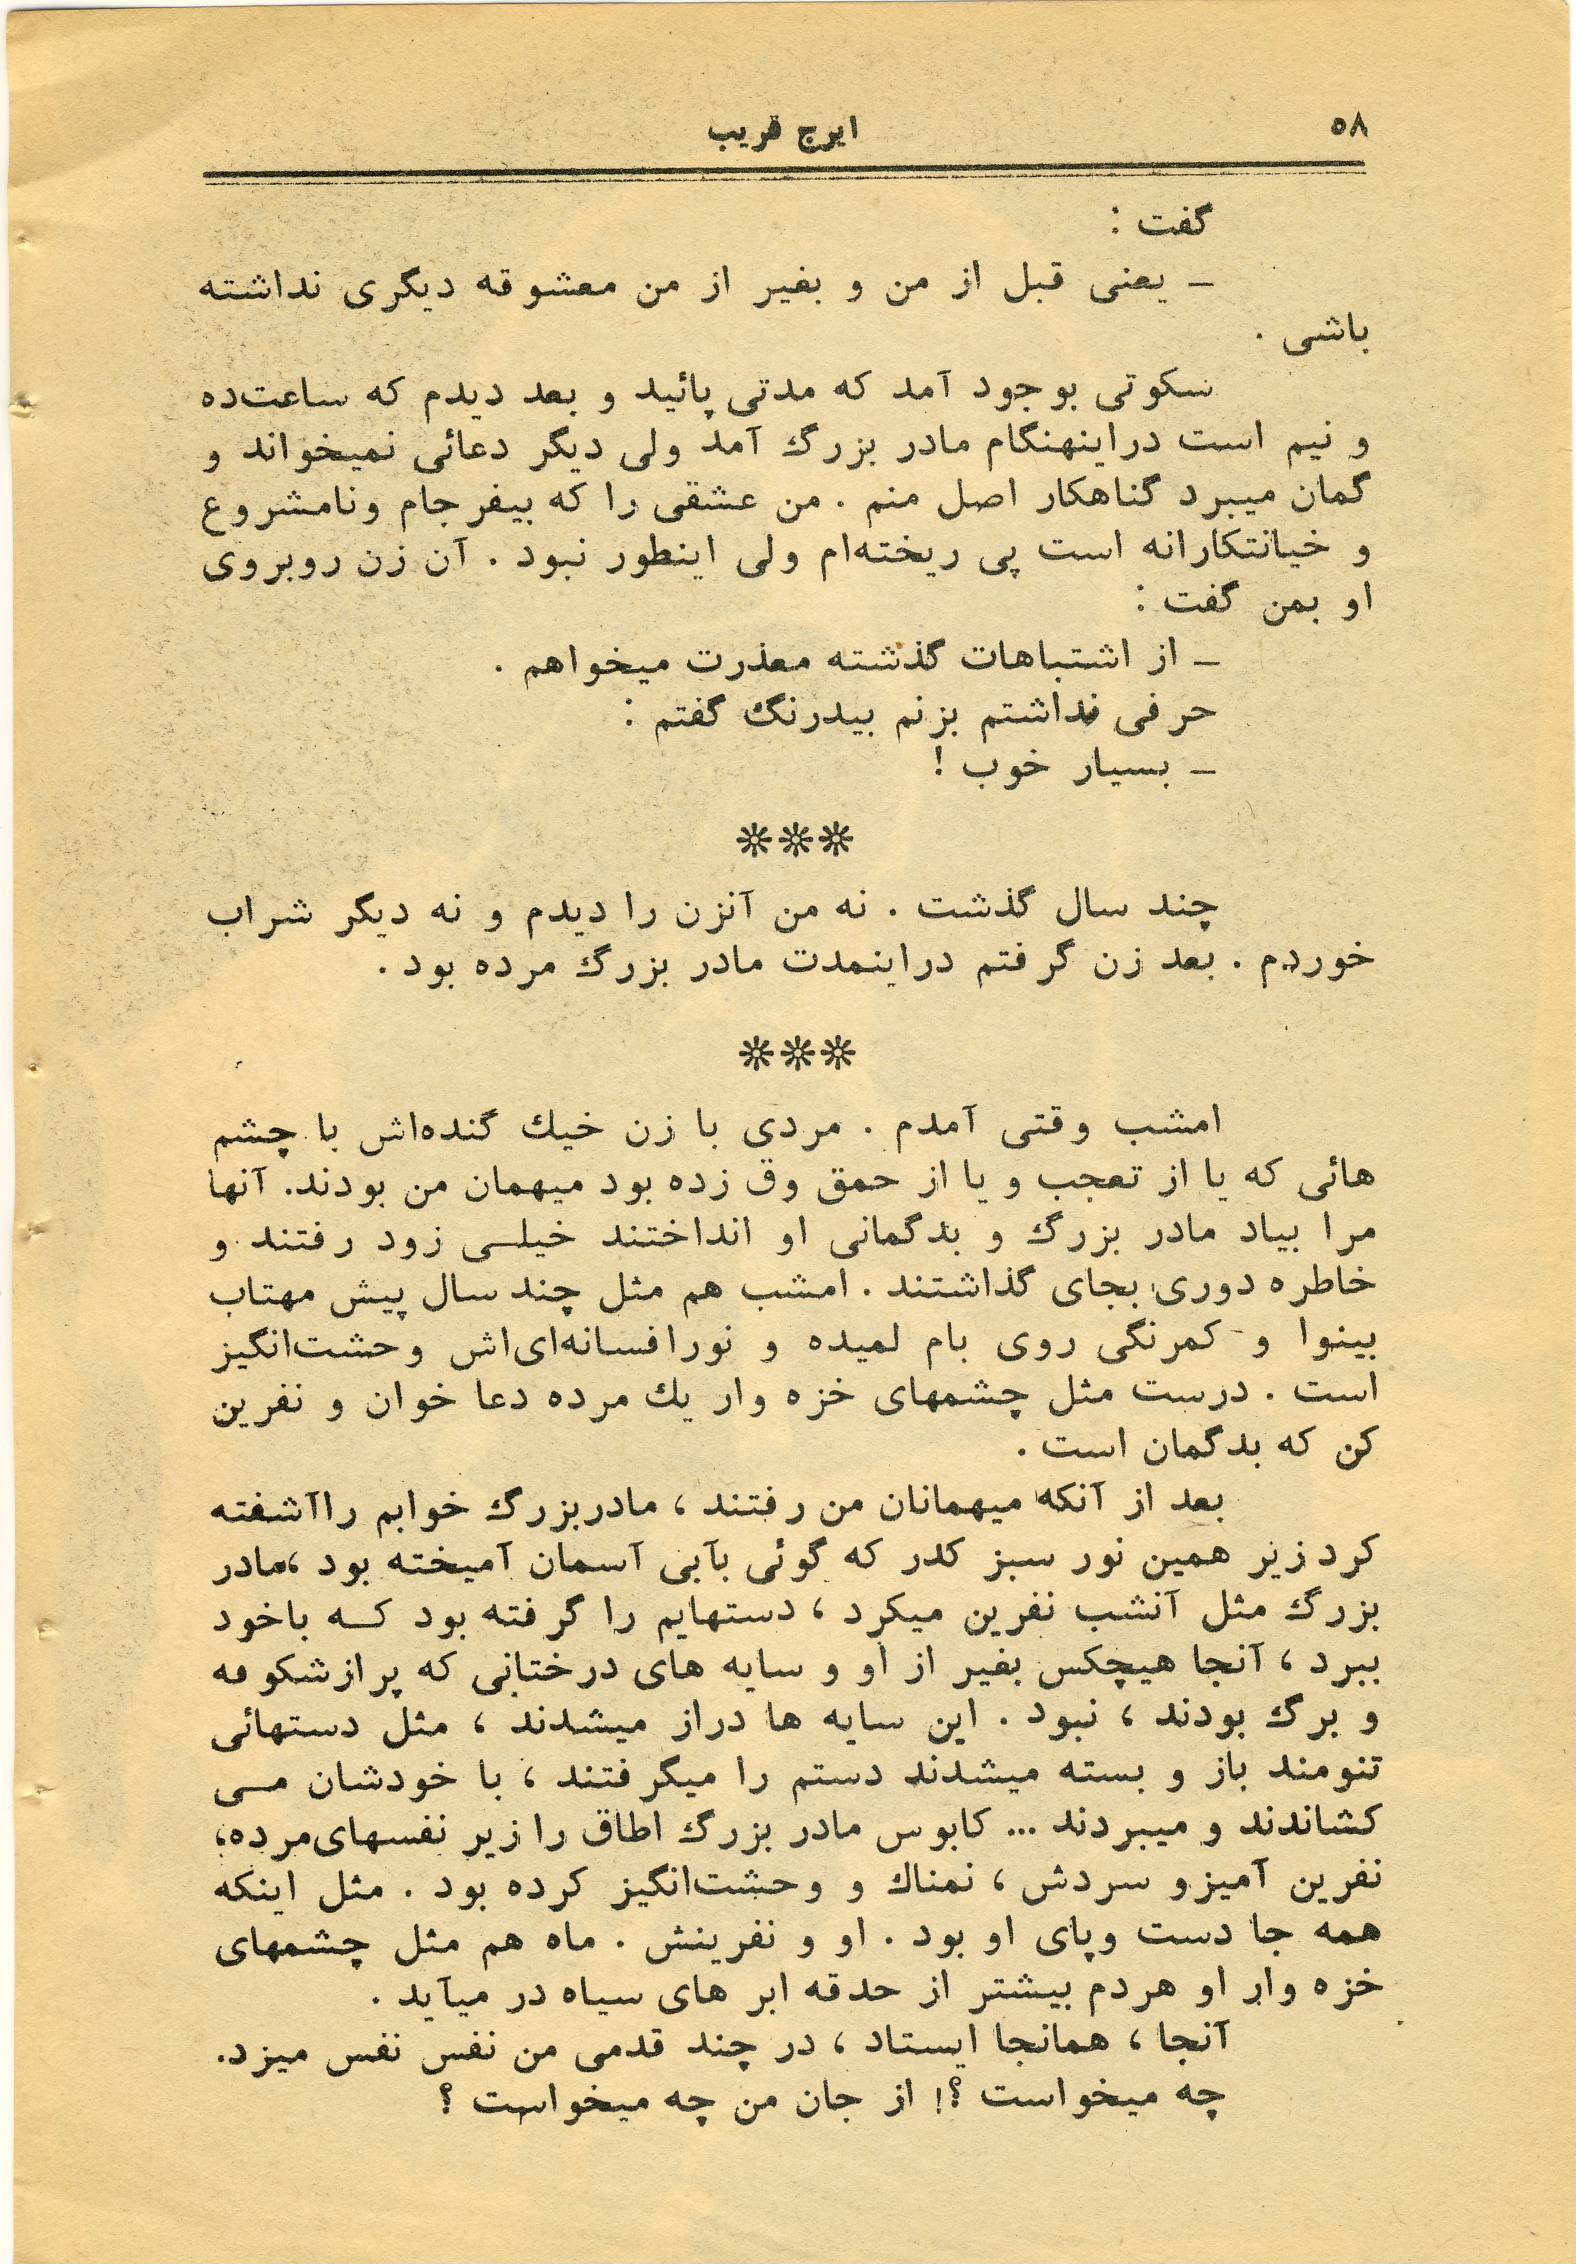 ۵۸
ایرج قریب
گفت :
ـ یعنی قبل از من و بغیر از من معشوقه دیگری نداشته
باشی .
سکوتی بوجود آمد که مدتی پائید و بعد دیدم که ساعت‌ده
و نیم است دراینهنگام مادر بزرگ آمد ولی دیگر دعائی نمیخواند و
گمان میبرد گناهکار اصل منم . من عشقی را که بیفرجام ونامشروع
و خیانتکارانه است پی ریخته‌ام ولی اینطور نبود . آن زن روبروی
او بمن گفت :
ـ از اشتباهات گذشته معذرت میخواهم .
حرفی نداشتم بزنم بیدرنگ گفتم :
ـ بسیار خوب !
***
چند سال گذشت . نه من آنزن را دیدم و نه دیگر شراب
خوردم . بعد زن گرفتم دراینمدت مادر بزرگ مرده بود .
***
امشب وقتی آمدم . مردی با زن خیك گنده‌اش با چشم
هائی که یا از تعجب و یا از حمق وق زده بود میهمان من بودند. آنها
مرا بیاد مادر بزرگ و بدگمانی او انداختند خیلـی زود رفتند و
خاطره دوری بجای گذاشتند . امشب هم مثل چند سال پیش مهتاب
بینوا و کمرنگی روی بام لمیده و نورافسانه‌ای‌اش وحشت‌انگیز
است . درست مثل چشمهای خزه وار یك مرده دعا خوان و نفرین
کن که بدگمان است .
بعد از آنکه میهمانان من رفتند ، مادربزرگ خوابم راآشفته
کرد زیر همین نور سبز کدر که گوئی بآبی آسمان آمیخته بود ،مادر
بزرگ مثل آنشب نفرین میکرد ، دستهایم را گرفته بود کـه باخود
ببرد ، آنجا هیچکس بغیر از او و سایه های درختانی که پرازشکوفه
و برگ بودند ، نبود . این سایه ها دراز میشدند ، مثل دستهائی
تنومند باز و بسته میشدند دستم را میگرفتند ، با خودشان مـی
کشاندند و میبردند ... کابوس مادر بزرگ اطاق را زیر نفسهای‌مرده،
نفرین آمیزو سردش ، نمناك و وحشت‌انگیز کرده بود . مثل اینکه
همه جا دست وپای او بود . او و نفرینش . ماه هم مثل چشمهای
خزه وار او هردم بیشتر از حدقه ابر های سیاه در میآید .
آنجا ، همانجا ایستاد ، در چند قدمی من نفس نفس میزد.
چه میخواست ؟! از جان من چه میخواست ؟